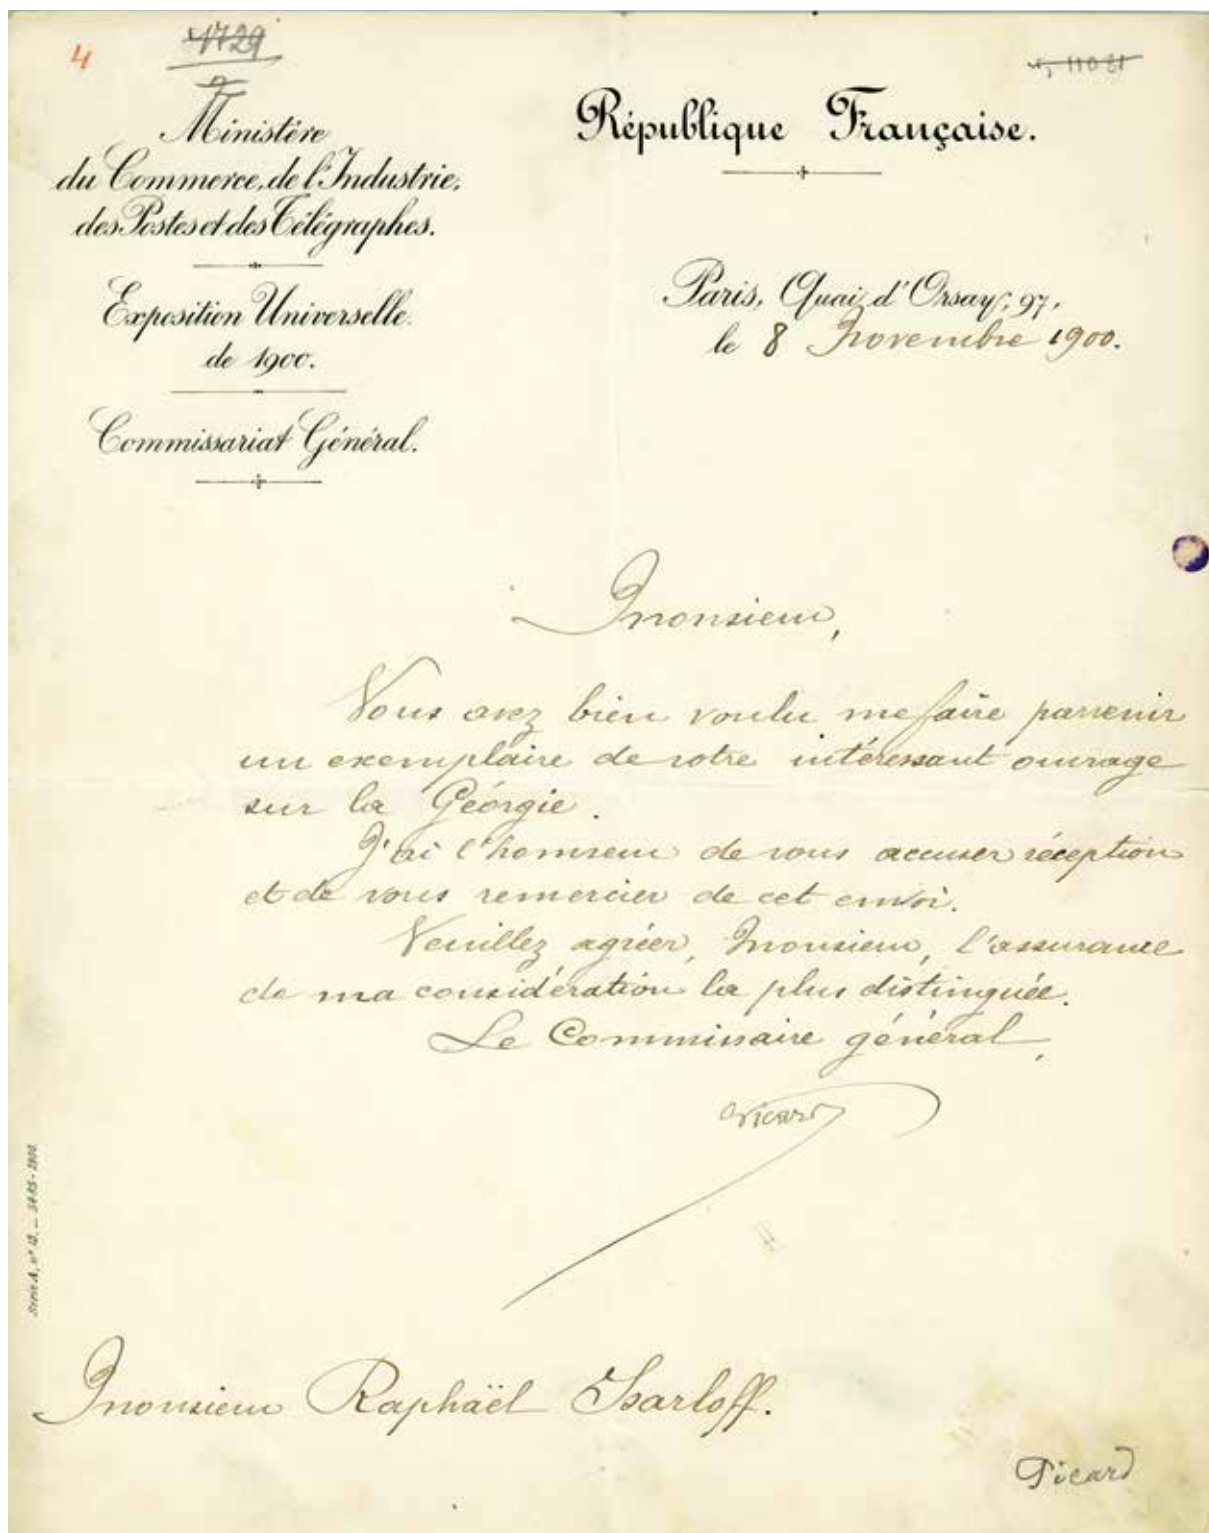 4
4729
Ministère
du Commerce, de l'Industrie,
des Postes et des Télégraphes.
Exposition Universelle
de 1900.
Commissariat Général.
République Française.
Paris, Quai d'Orsay, 97,
le 8 Novembre 1900.
Monsieur,
Vous avez bien voulu me faire parvenir
un exemplaire de votre intéressant ouvrage
sur la Géorgie.
J'ai l'honneur de vous accuser réception
et de vous remercier de cet envoi.
Veuillez agréer, Monsieur, l'assurance
de ma considération la plus distinguée.
Le Commissaire général,
Picard
Monsieur Raphaël Isarloff.
Picard